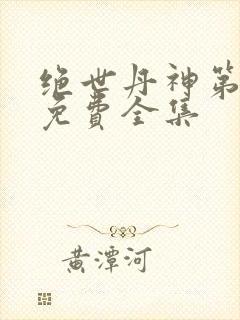 绝世丹神第
免费全集
黄潭河